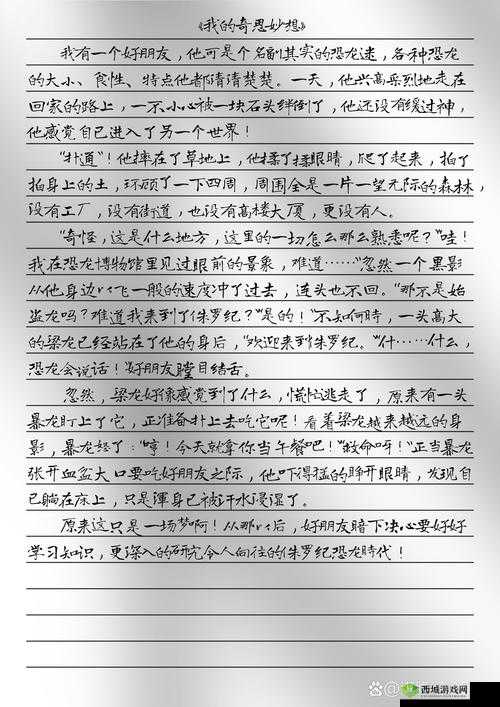 《我的奇思妙想》
我有一个好朋友，他可是个名副其实的恐龙迷，各种恐龙
的大小、食性、特点他都清清楚楚。一天，他兴高采烈地走在
回家的路上，一不小心被一块石头绊倒了，他还没有缓过神，
他感觉自己进入了另一个世界！
“扑通”！他摔在了草地上，他揉了揉眼睛，爬了起来，拍了
拍身上的土，环顾了一下四周，周围全是一片一望无际的森林，
没有工厂，没有街道，也没有高楼大厦，更没有人。
“奇怪，这是什么地方，这里的一切怎么那么熟悉呢？”哇！
我在恐龙博物馆里见过眼前的景象，难道……“忽然一个黑影
从他身边以飞一般的速度冲了过去，连头也不回。“那不是始
盗龙吗？难道我来到了侏罗纪？”是的！“不知何時，一头高大
的梁龙已经站在了他的身后，“欢迎来到侏罗纪。”什……什么，
恐龙会说话！”好朋友瞠目结舌。
忽然，梁龙好像感觉到了什么，慌忙逃走了，原来有一头
暴龙盯上了它，正准备扑上去吃它呢！看着梁龙越来越远的身
影，暴龙怒了：“哼！今天就拿你当午餐吧！”“救命呀！”正当暴龙
张开血盆大口要吃好朋友之际，他吓得猛的睁开眼睛，发现自
己躺在床上，只是渾身已被汗水浸湿了。
原来这只是一场梦啊！从那以后，好朋友暗下决心要好好
学习知识，更深入的研究令人向往的侏罗纪恐龙時代！
西城游戏网